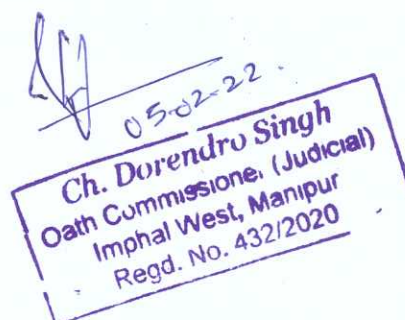 05-02-22.
Ch. Dorendro Singh
Oath Commissioner (Judicial)
Imphal West, Manipur
Regd. No. 432/2020